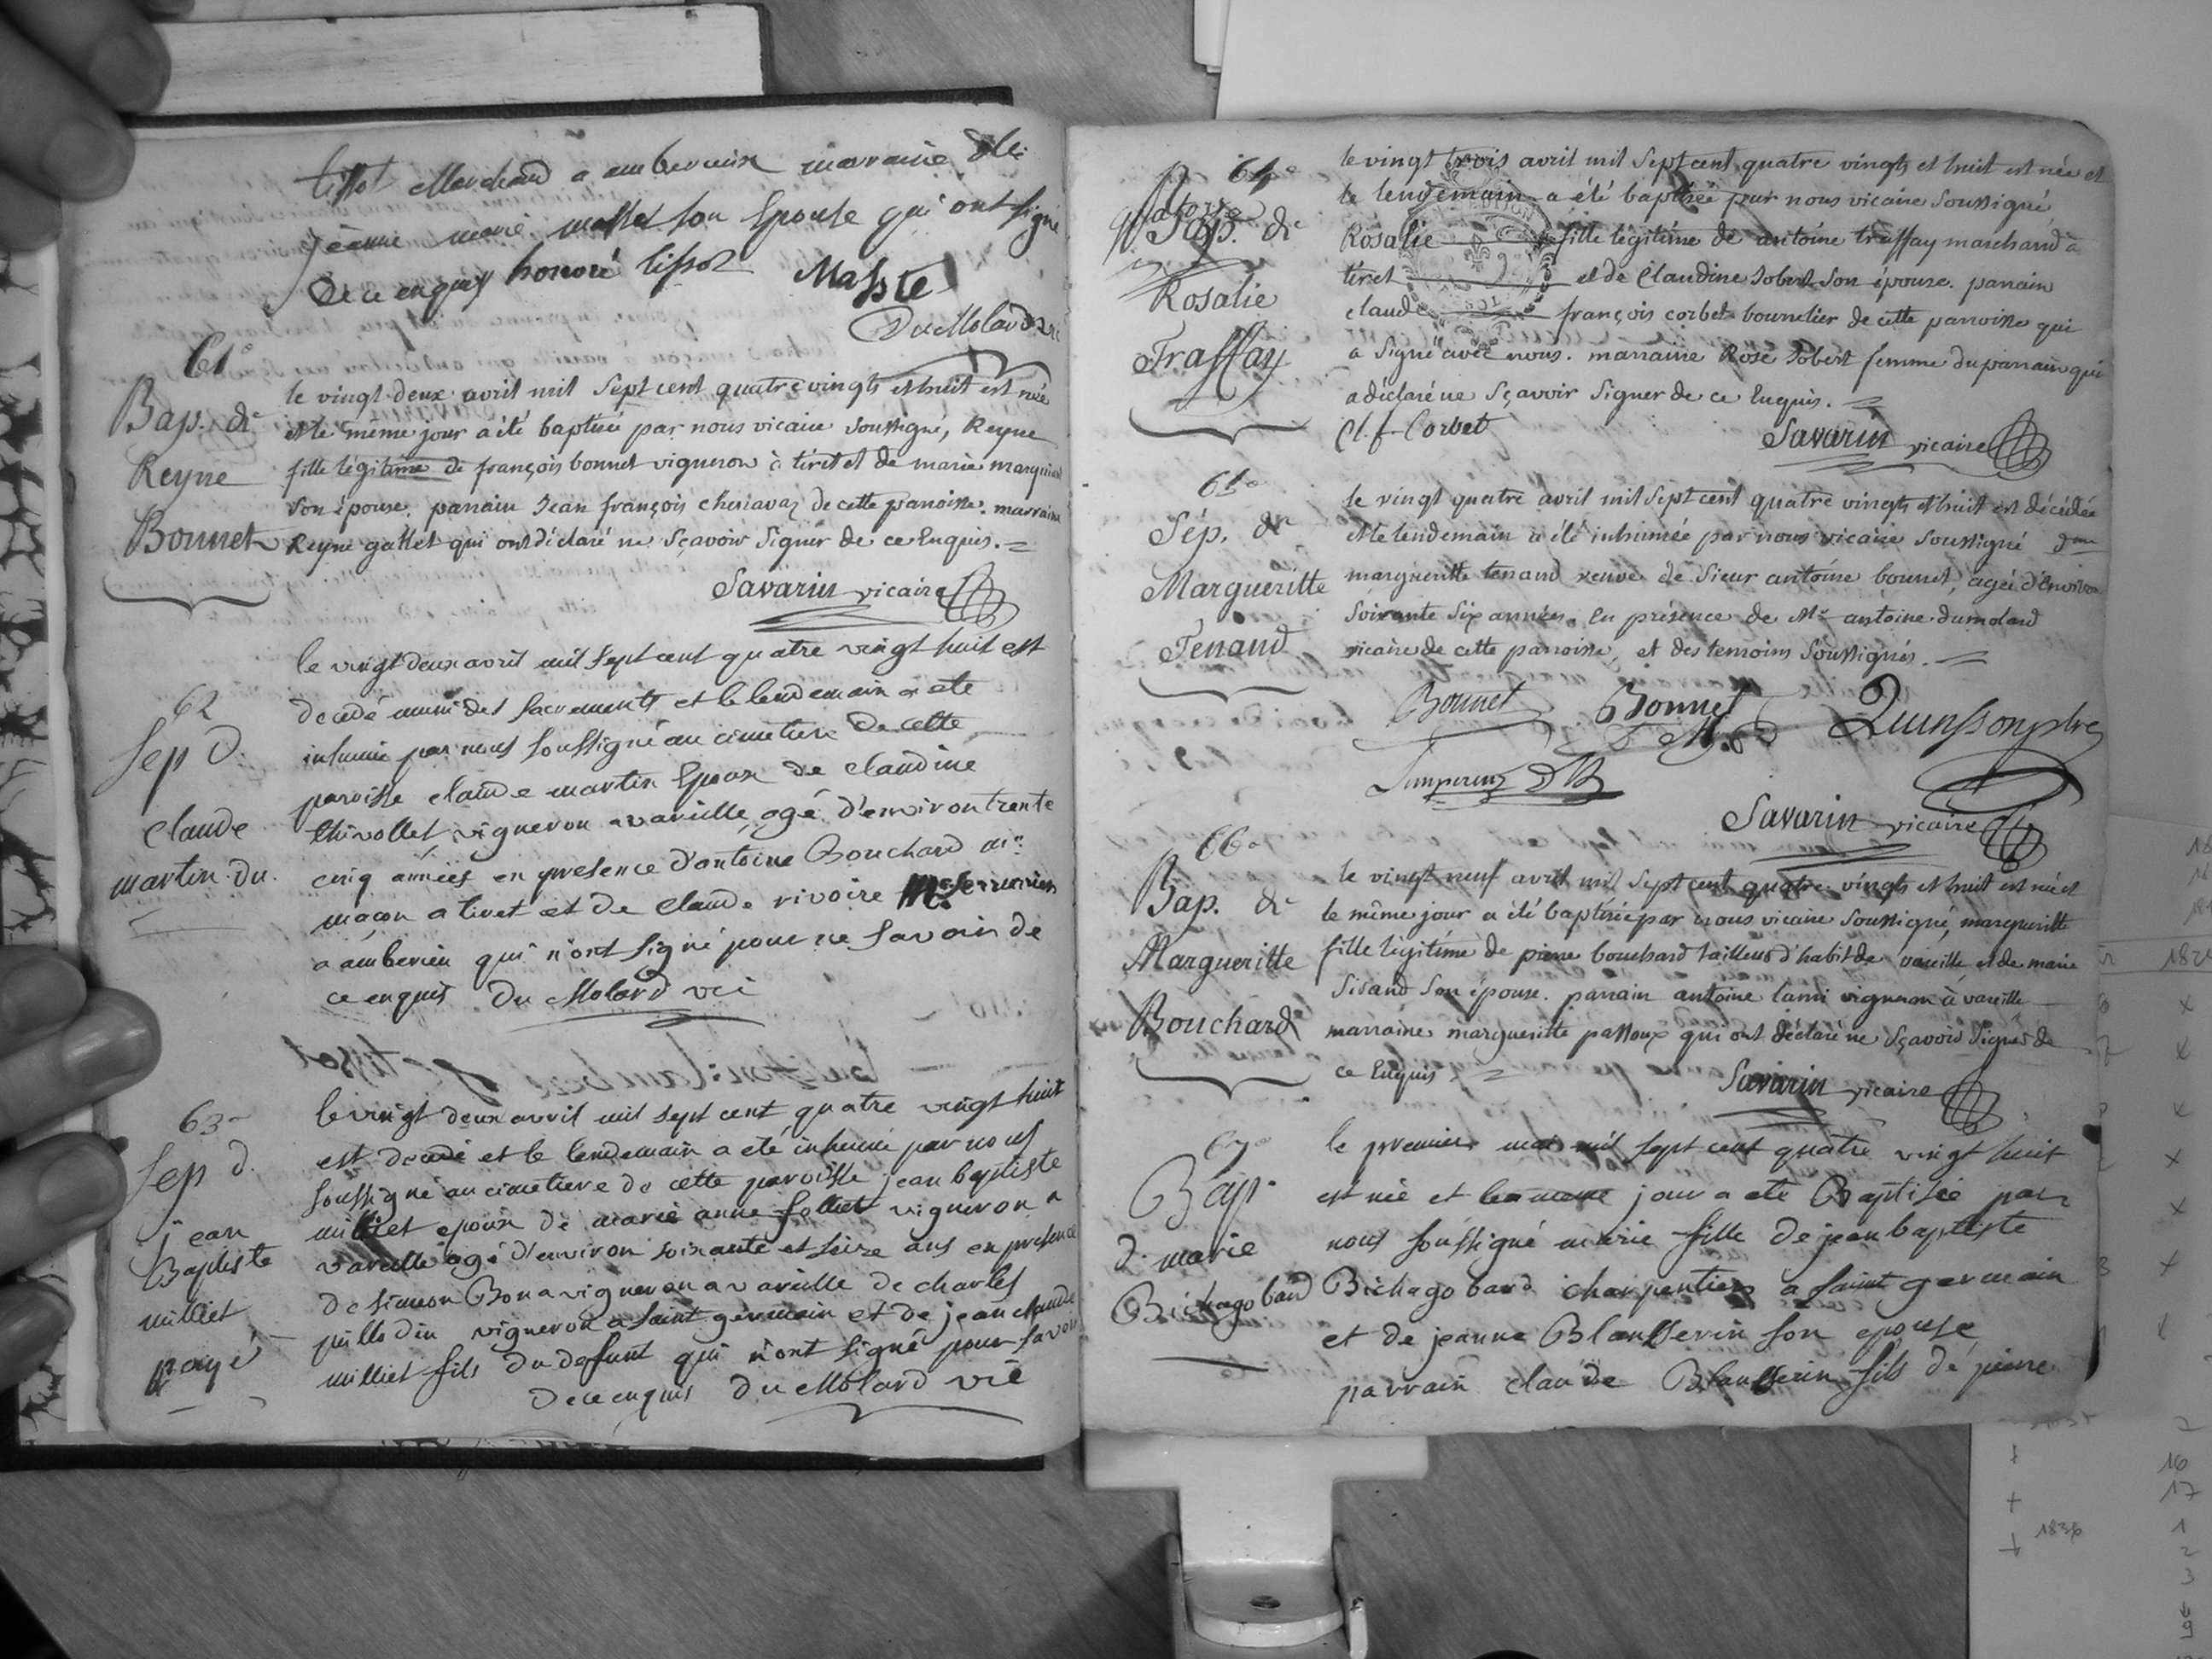 tissot Marchand a amberieux marraine dlle
jeanne marie masset son Epouse qui ont signé
De ce enquis honoré tissot Masste
Du Molard vic
61e
Bap. de
Reyne
Bonnet
le vingt deux avril mil sept cent quatre vingts et huit est née
et le même jour a été baptisée par nous vicaire soussigné, Reyne
fille légitime de françois bonnet vigneron à tiret et de marie marquis
son épouse. parrain Jean françois chenavaz de cette parroisse. marraine
Reyne gallet qui ont déclaré ne sçavoir signer de ce Enquis.
Savarin vicaire
62
Sep d.
claude
martin du.
le vingt deux avril mil sept cent quatre vingt huit est
decedé muni des sacrements et le lendemain a ete
inhumé par nous soussigné au cimetiere de cette
paroisse claude martin Epoux de claudine
thivollet vigneron a vareille agé d'environ trente
cinq années en presence d'antoine Bouchard
maçon a tiret et de Claude rivoire serrurier
a amberieu qui n'ont signé pour ne savoir de
ce enquis du Molard vic
63e
Sep d.
jean
Baptiste
milliet
payé
le vingt deux avril mil sept cent quatre vingt huit
est decedé et le lendemain a eté inhumé par nous
soussigné au cimetiere de cette paroisse jean baptiste
milliet epoux de marie anne follliet vigneron a
vareille agé d'environ soixante et seize ans en presence
de simeon Bona vigneron a vareille de charles
pillodin vigneron a saint germain et de jean claude
milliet fils du defunt qui n'ont signé pour savoir
de ce enquis du Molard vic
64e
Bap. de
Rosalie
Traffay
le vingt trois avril mil sept cent quatre vingts et huit est née et
le lendemain a été baptisée par nous vicaire soussigné
Rosalie fille légitime de antoine traffay marchand à
tiret et de Claudine Jobert son épouse. parrain
claude françois corbet bourrelier de cette parroisse qui
a signé avec nous. marraine Rose Jobert femme du parrain qui
a déclaré ne sçavoir signer de ce Enquis.
Cl. f. Corbet Savarin vicaire
65e
Sép. de
Margueritte
Tenand
le vingt quatre avril mil sept cent quatre vingts et huit est décédée
et le lendemain a été inhumée par nous vicaire soussigné dme
margueritte tenand veuve de sieur antoine bonnet, agée d'environ
soixante six années. En présence de Mr antoine dumolard
vicaire de cette parroisse, et des temoins soussignés.
Bonnet Bonnet Quinssonptre
Savarin vicaire
66e
Bap. de
Margueritte
Bouchard
le vingt neuf avril mil sept cent quatre vingts et huit est née et
le même jour a été baptisée par nous vicaire soussigné, margueritte
fille légitime de pierre bouchard tailleur d'habit de vareille et de marie
Sisand son épouse. parrain antoine lami vigneron à vareille
marraine margueritte passoux qui ont déclaré ne sçavoir signer de
ce Enquis Savarin vicaire
67e
Bap.
d. marie
Bichago bard
le premier mai mil sept cent quatre vingt huit
est née et le meme jour a ete Baptisée par
nous soussigné marie fille de jean baptiste
Bichago bard charpentier a saint germain
et de jeanne Blansserin son epouse
parrain claude Blansserin fils de pierre